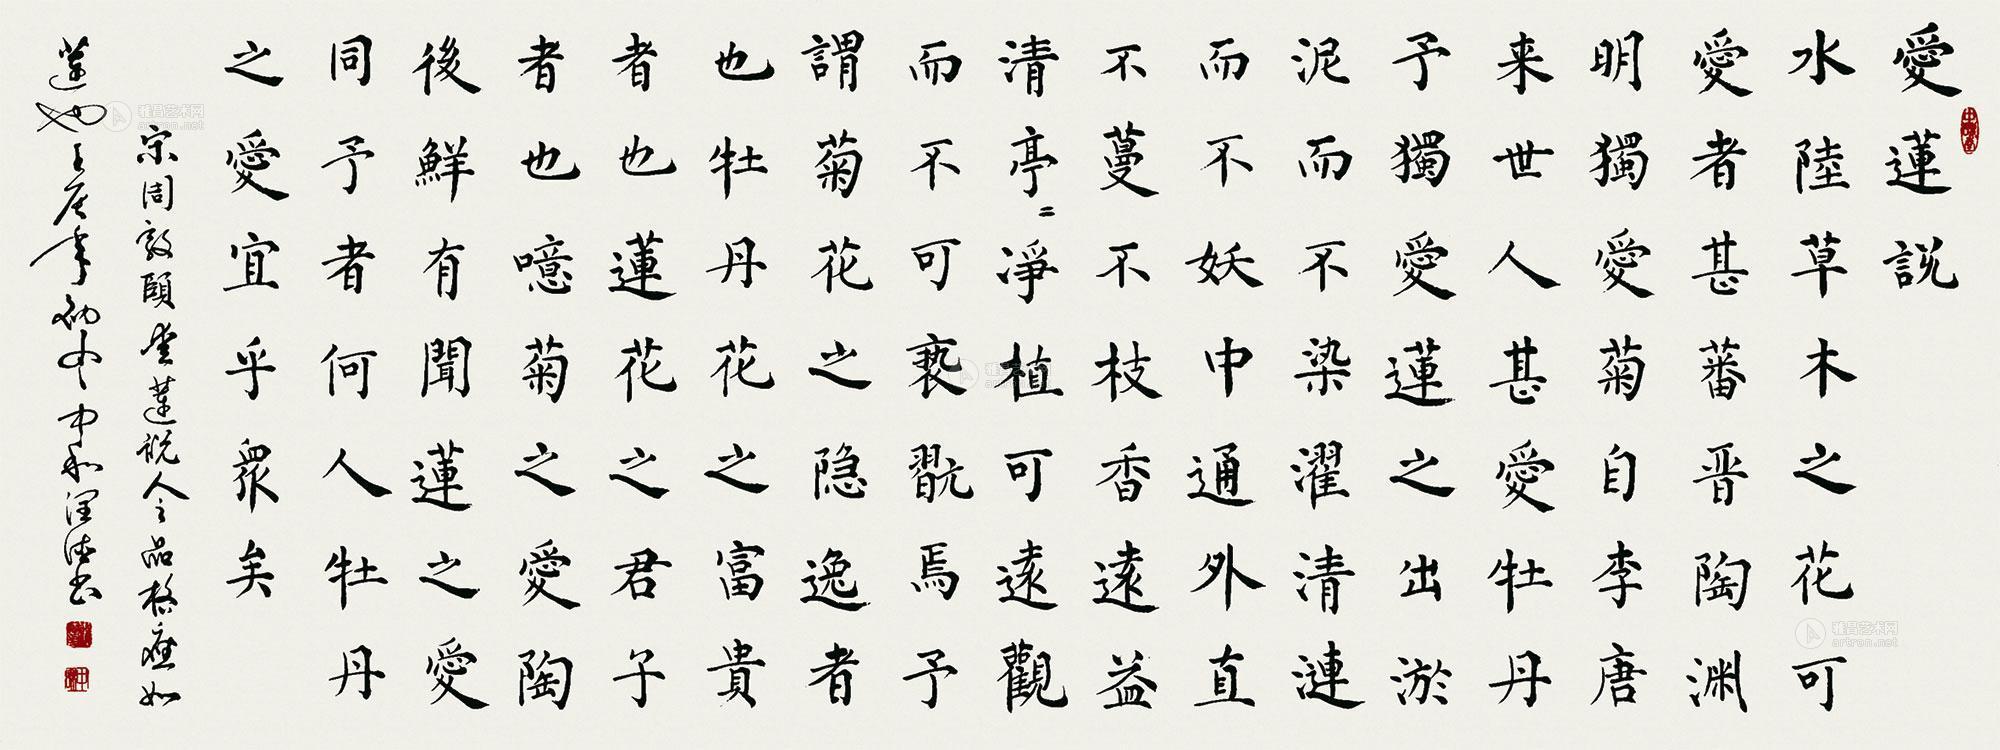 愛蓮説
水陸草木之花可
愛者甚蕃晋陶渊
明獨愛菊自李唐
来世人甚愛牡丹
予獨愛蓮之出淤
泥而不染濯清漣
而不妖中通外直
不蔓不枝香遠益
清亭〻淨植可遠觀
而不可亵翫焉予
謂菊花之隐逸者
也牡丹花之富貴
者也蓮花之君子
者也噫菊之愛陶
後鮮有聞蓮之愛
同予者何人牡丹
之愛宜乎眾矣
宋周敦頤愛蓮説人之品格應如
蓮也
雅昌艺术网
artron.net
雅昌艺术网
artron.net
雅昌艺术网
artron.net